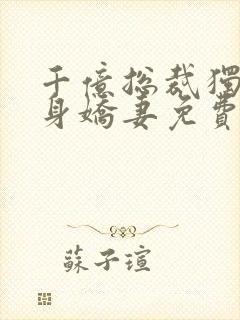 千億總裁獨
身嬌妻免費
蘇子瑄